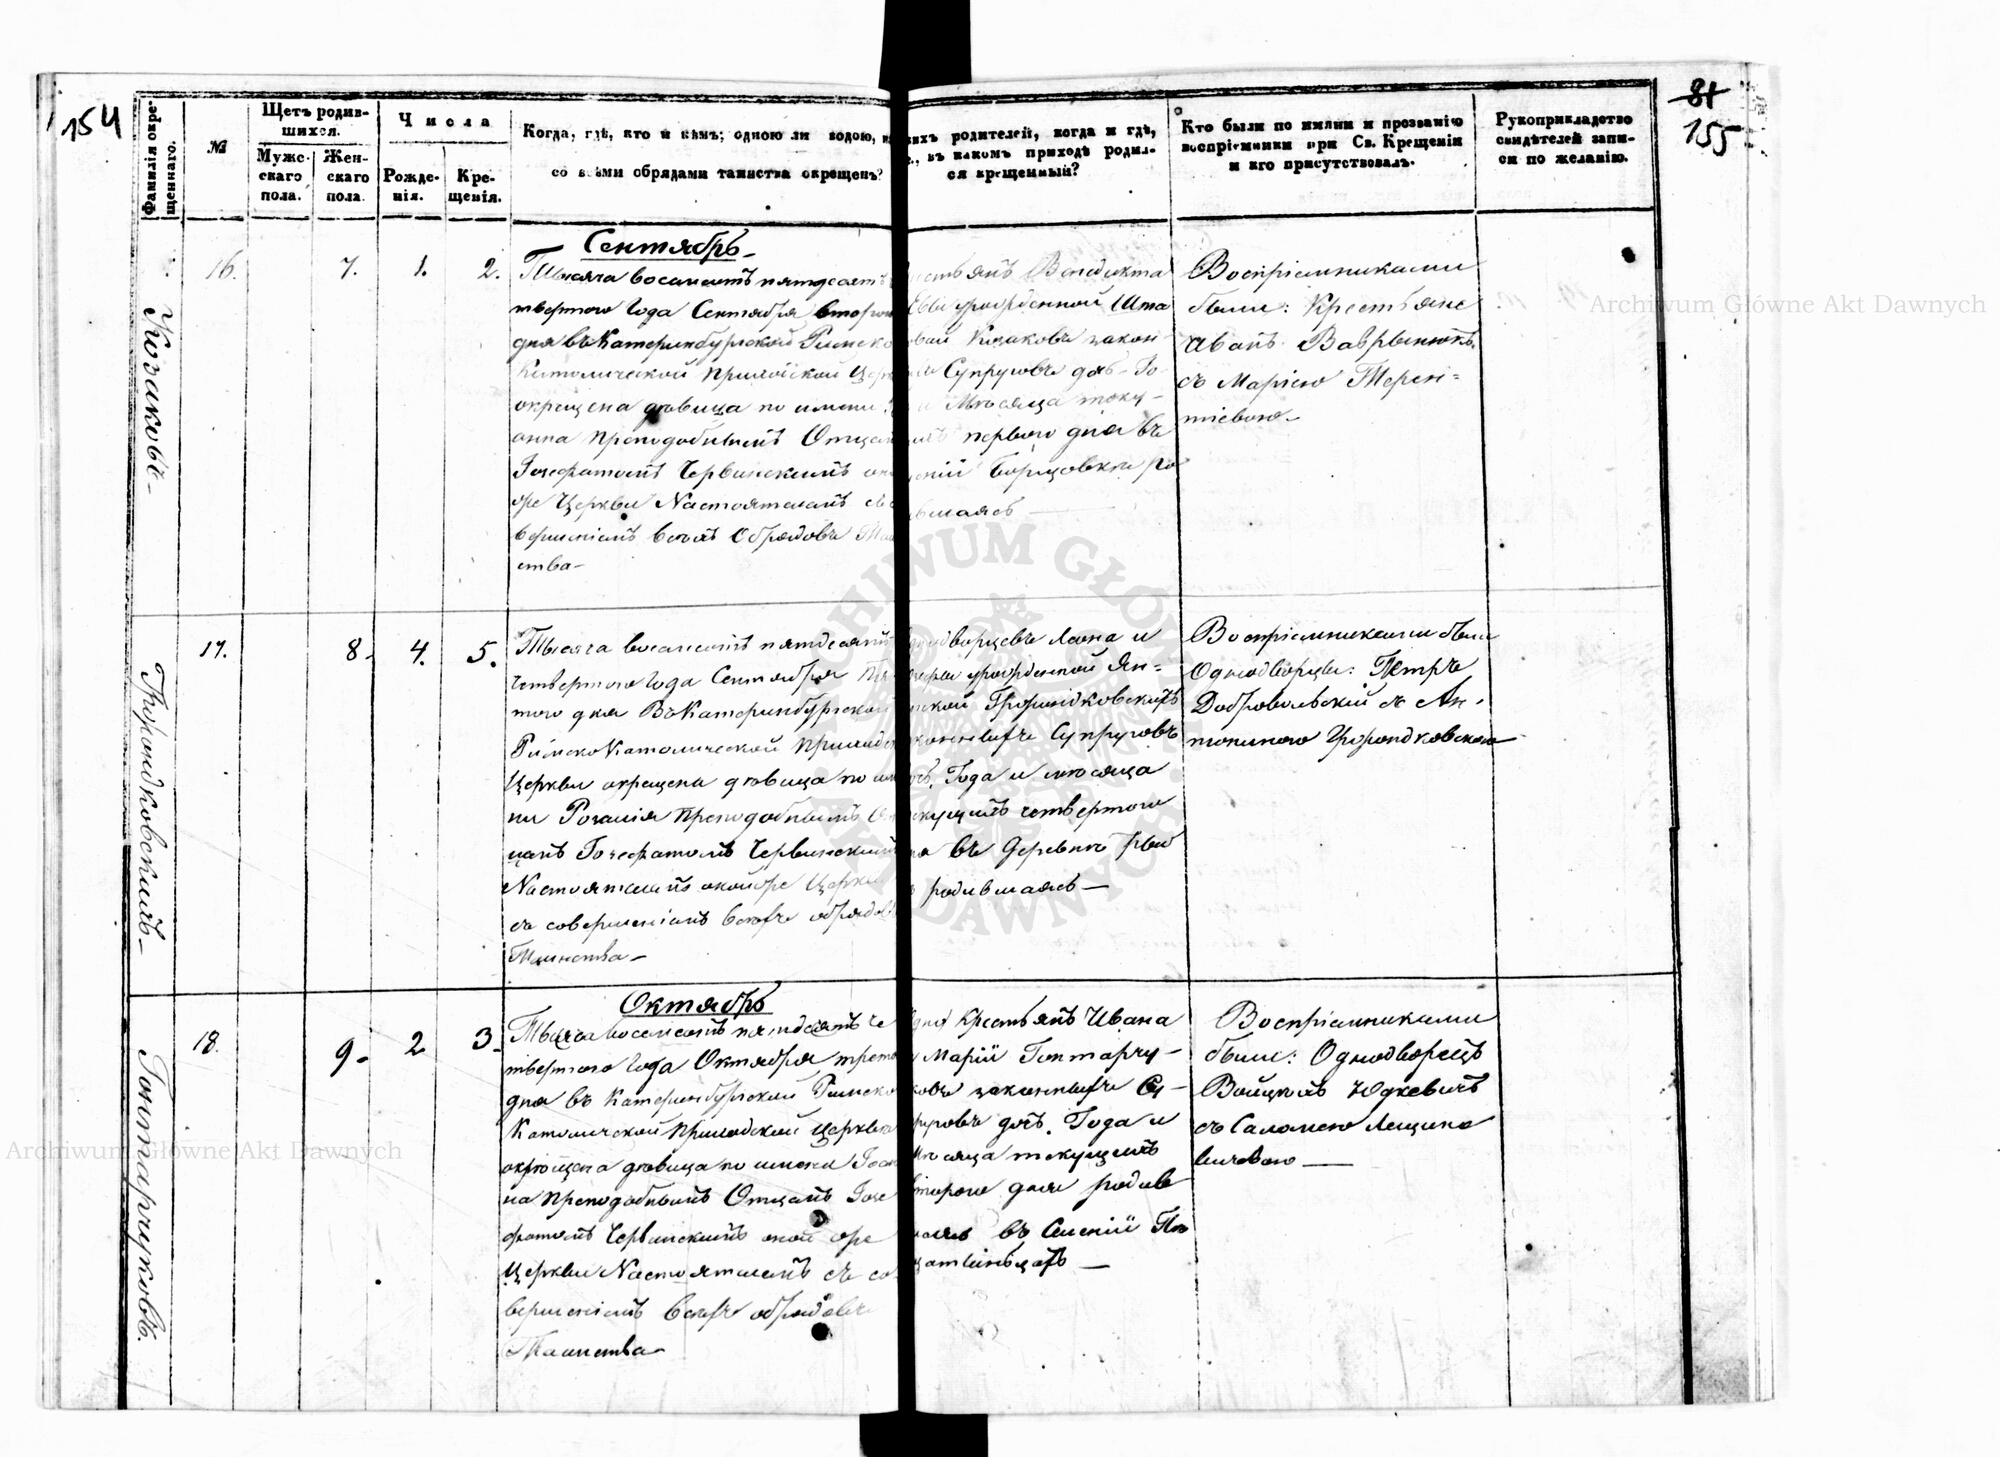 154
81
155
Фамилія окрещеннаго.
№
Щетъ родив-
шихся.
Муже-
скаго
пола.
Жен-
скаго
пола.
Числа
Рожде-
нія.
Кре-
щенія.
Когда, гдѣ, кто и кѣмъ; одною ли водою, и
со всѣми обрядами таинства окрещенъ?
родителей, когда и гдѣ,
въ какомъ приходѣ родил-
ся крещенный?
Кто были по имени и прозванію
воспріемники при Св. Крещеніи
и кто присутствовалъ.
Рукоприкладство
свидѣтелей запи-
си по желанію.
Козаковъ
16.
7.
1.
2.
Сентябрь
Тысяча восемсотъ пятдесятъ
твертого Года Сентября второго
дня въ Катеринбургской Римско
Католической Приходской Церк
окрещена дѣвица по имени
анна Преподобнымъ Отцемъ
Іозефатомъ Червинскимъ
Церкви Настоятелемъ съ
вершеніемъ всѣхъ Обрядовъ Таи
ства
Крестьянъ Венедикта
Евы урожденной Шта
Козаковъ закон-
Супруговъ дочь Го-
и Мѣсяца теку-
первого дня въ
Борщовки ро
дившаяся
Воспріемниками
были: Крестьяне
Иванъ Ваврынюкъ
съ Маріею Терен-
тіевою
17.
8.
4.
5.
Тысяча восемсотъ пятдесятъ
четвертого Года Сентября Пя
того дня Въ Катеринбургской
Римско Католической Приходс
Церкви окрещена дѣвица по име
ни Розалія Преподобнымъ От
цемъ Іозефатомъ Червинскимъ
Настоятелемъ оной же Церкви
съ совершеніемъ всѣхъ обрядовъ
Таинства
Однодворцевъ Леона и
урожденной Ян-
законныхъ Супруговъ
дочь. Года и мѣсяца
текущихъ четвертого
дня въ Деревнѣ
родившаяся
Воспріемниками были
Однодворцы: Петръ
Добровольскій съ Ан-
тониною
18.
9.
2
3.
Октябрь
Тысяча восемсотъ пятдесятъ че
твертого Года Октября трет
дня въ Катеринбургской Римско
Католической Приходской Церкви
окрещена дѣвица по имени Іоан
на Преподобнымъ Отцемъ Іозе
фатомъ Червинскимъ оной же
Церкви Настоятелемъ съ со-
вершеніемъ всѣхъ обрядовъ
Таинства
Крестьянъ Ивана
Маріи Гонтарчу-
ковъ законныхъ Су-
пруговъ дочь. Года и
Мѣсяца текущихъ
второго дня родив
шаяся въ Селеніи
Гонтарчуковъ.
Воспріемниками
были: Однодворецъ
Войцехъ Юдкевичъ
съ Саломеею Лещина
вичевою
Archiwum Główne Akt Dawnych
Archiwum Główne Akt Dawnych
ARCHIWUM GŁÓWNE AKT DAWNYCH